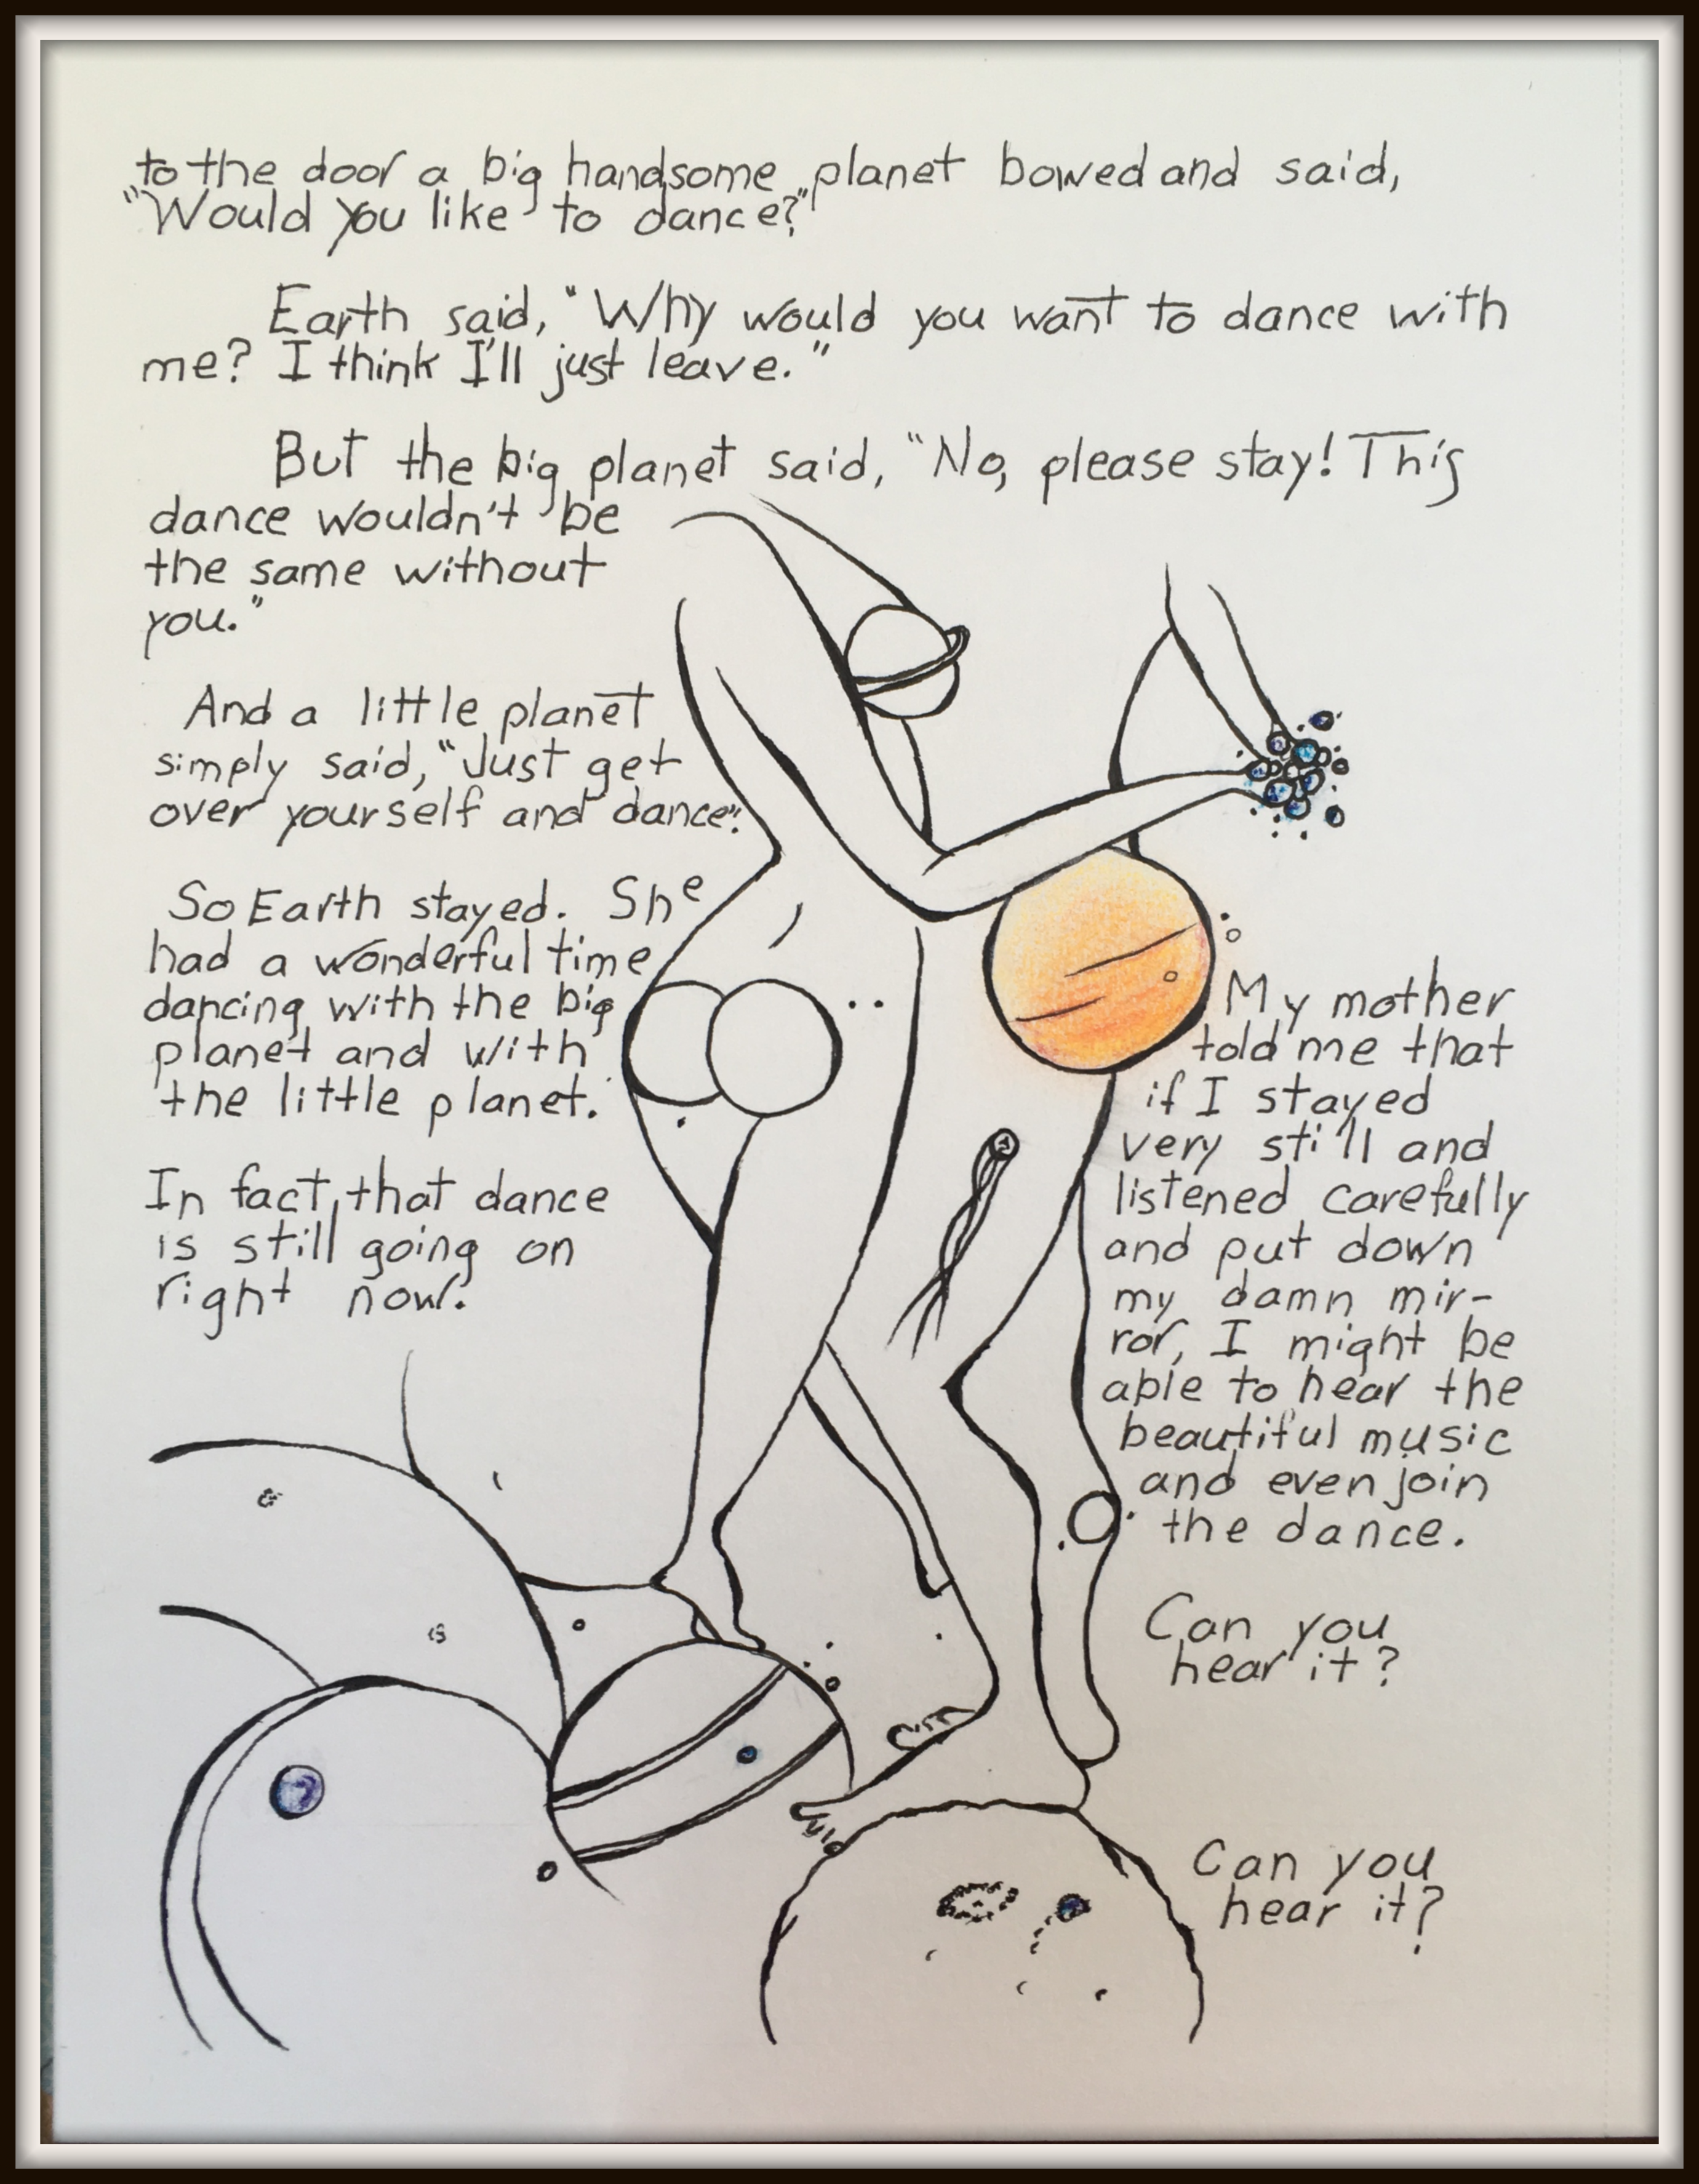 to the door a big handsome planet bowed and said,
"Would you like to dance?"
Earth said, "Why would you want to dance with
me? I think I'll just leave."
But the big planet said, "No, please stay! This
dance wouldn't be
the same without
you."
And a little planet
simply said, "Just get
over yourself and dance."
So Earth stayed. She
had a wonderful time
dancing with the big
planet and with
the little planet.
In fact, that dance
is still going on
right now.
My mother
told me that
if I stayed
very still and
listened carefully
and put down
my damn mir-
ror, I might be
able to hear the
beautiful music
and even join
the dance.
Can you
hear it?
Can you
hear it?